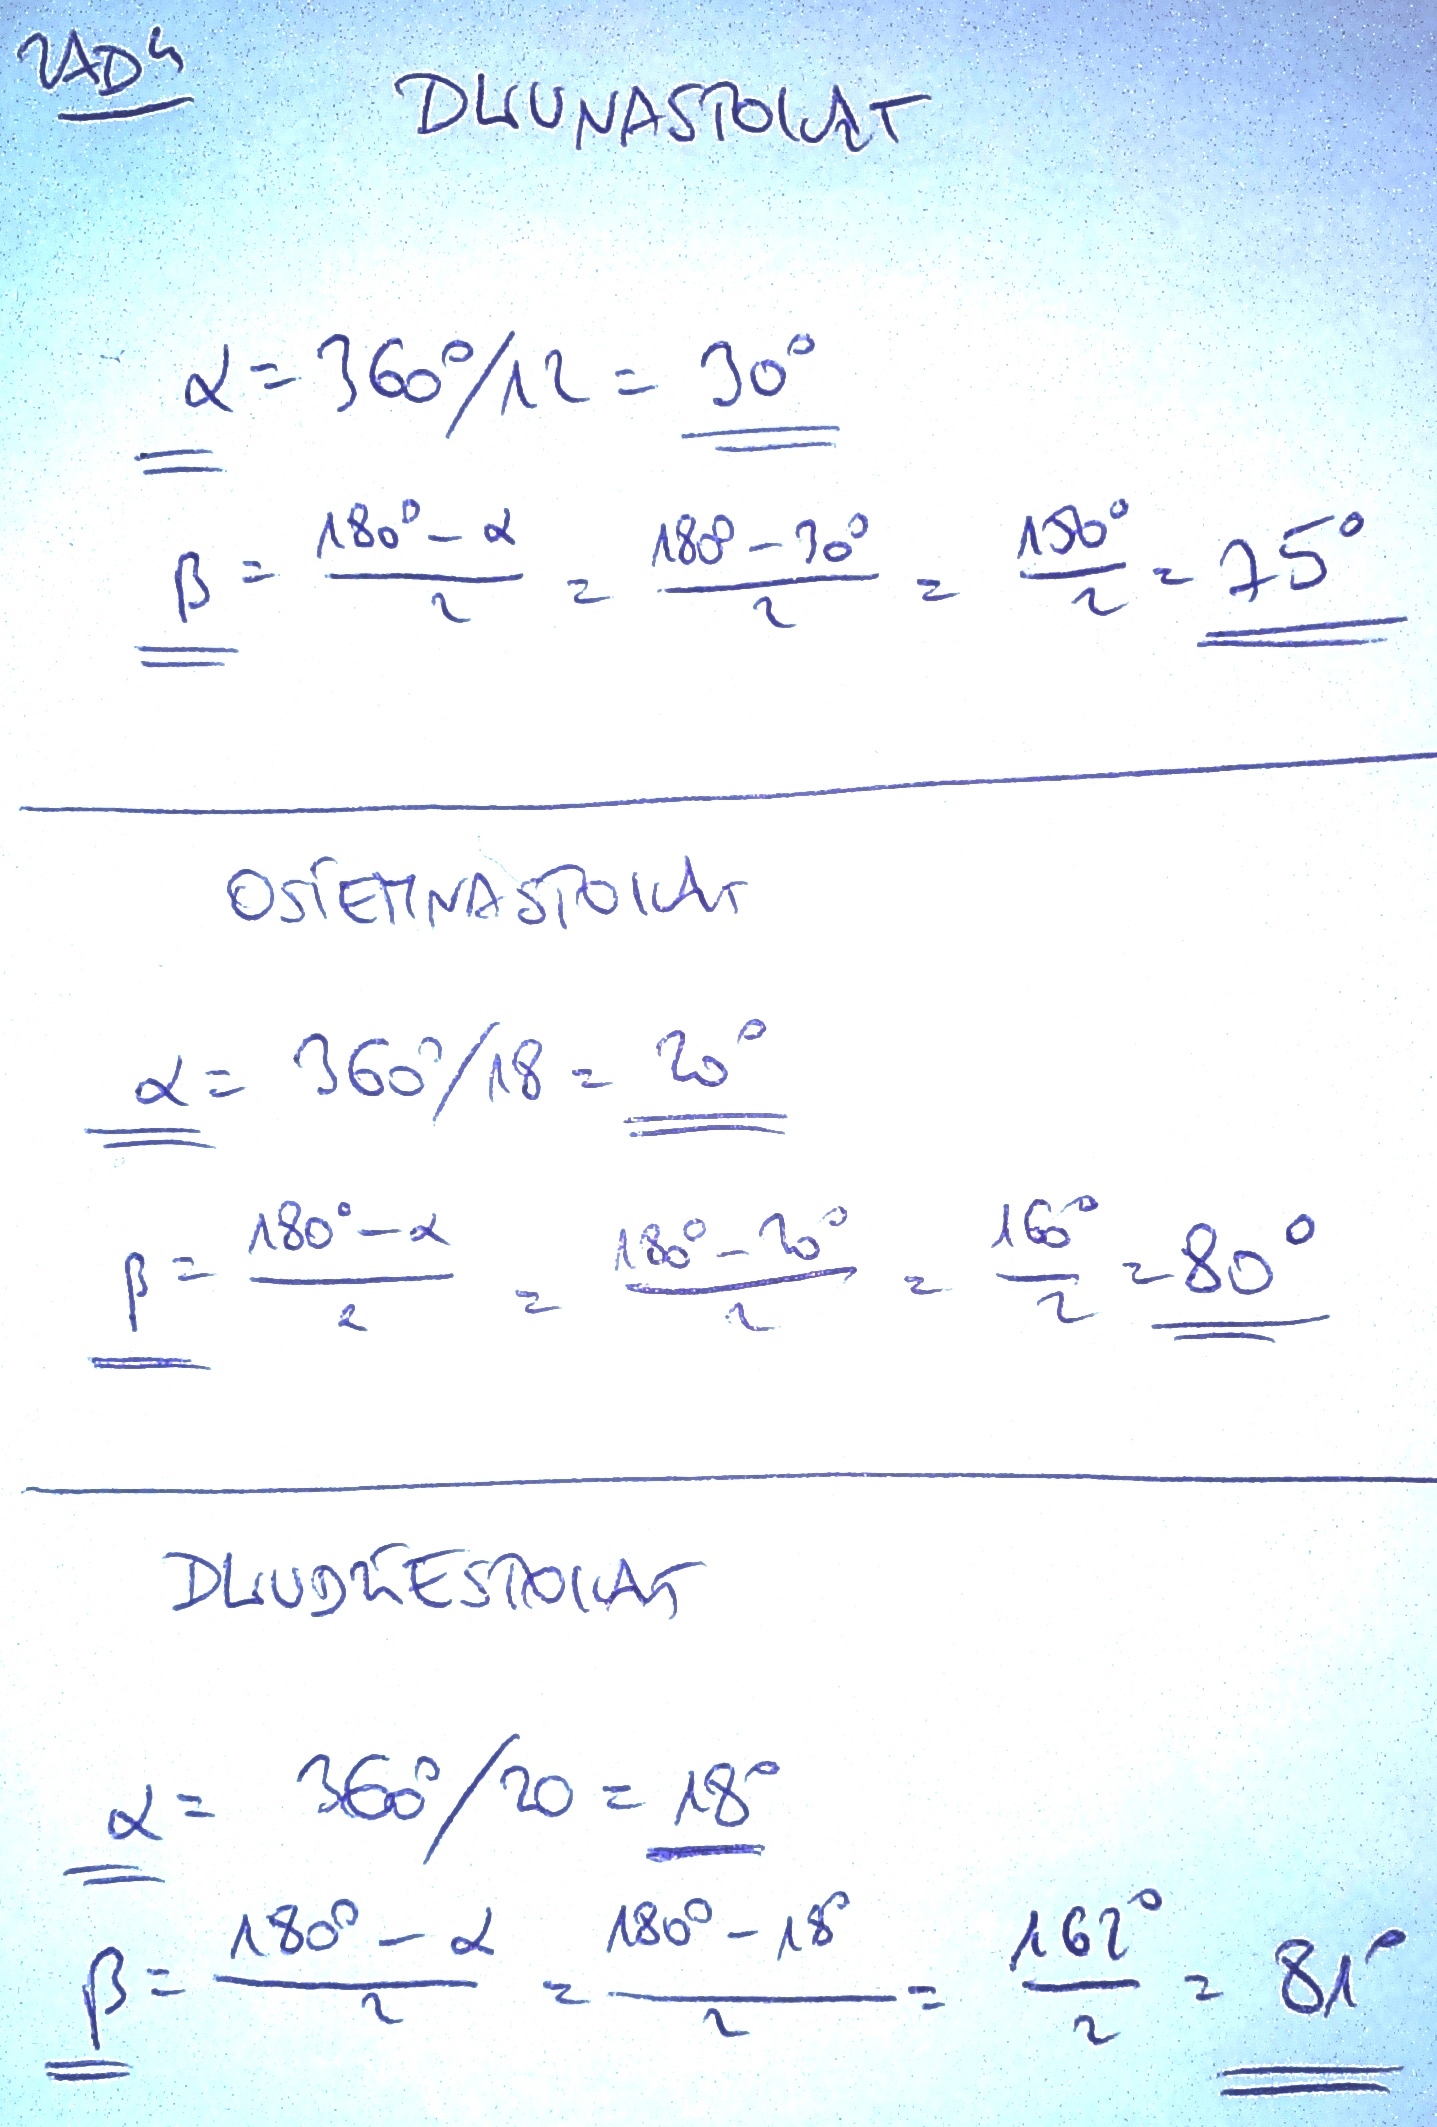 ZAD 4
DWUNASTOKĄT
α = 360°/12 = 30°
β = (180° - α)/2 = (180° - 30°)/2 = 150°/2 = 75°
OSIEMNASTOKĄT
α = 360°/18 = 20°
β = (180° - α)/2 = (180° - 20°)/2 = 160°/2 = 80°
DWUDZIESTOKĄT
α = 360°/20 = 18°
β = (180° - α)/2 = (180° - 18°)/2 = 162°/2 = 81°